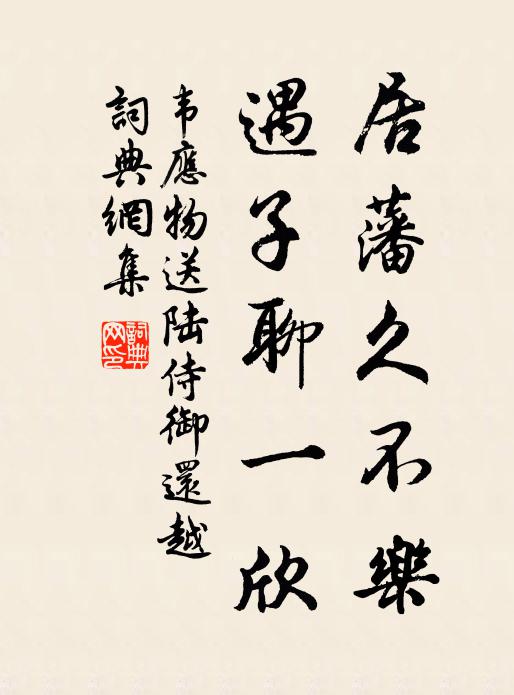 居藩久不樂
遇子聊一欣
韦應物送陆侍御還越
詞典網集
詞典网印